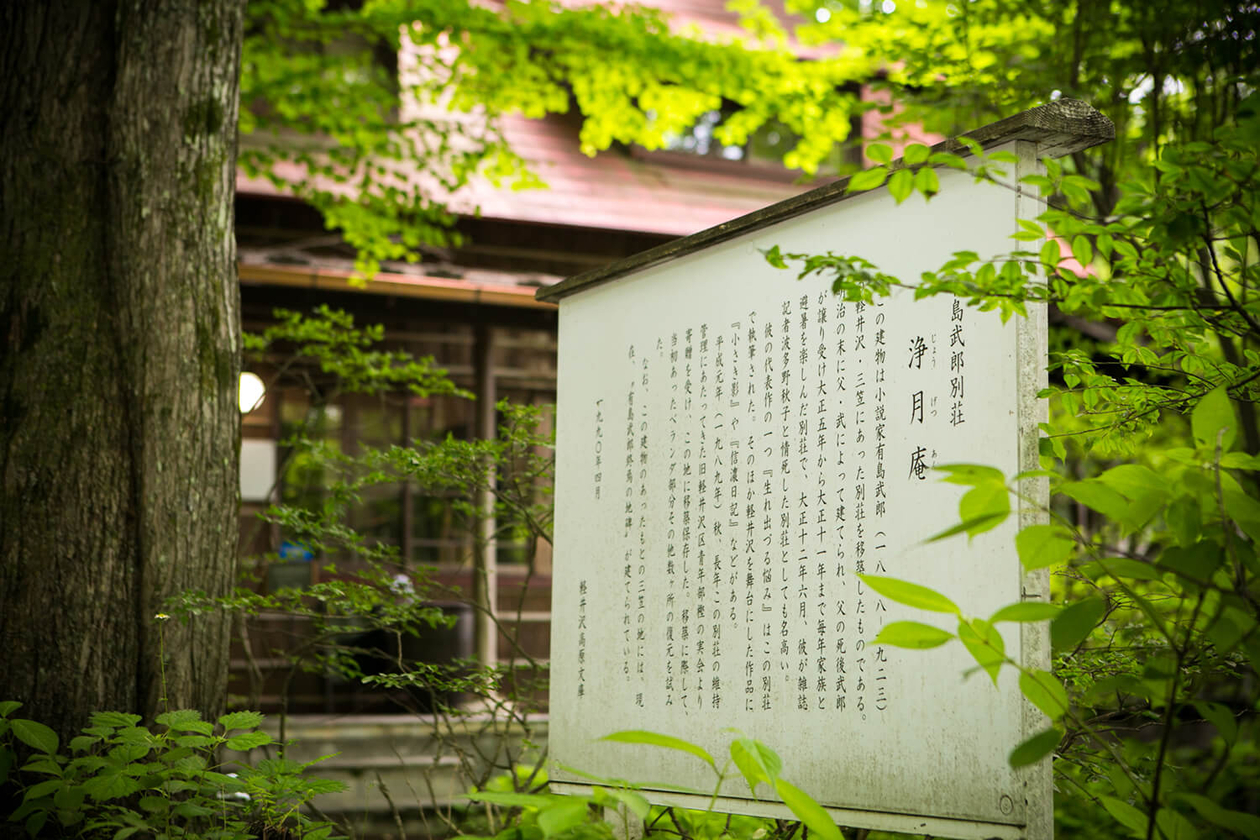 島武郎別荘
じょう げつ あん
浄月庵
この建物は小説家有島武郎(一八七八―一九二三)
軽井沢・三笠にあった別荘を移築したものである。
明治の末に父・武によって建てられ、父の死後武郎
が譲り受け大正五年から大正十一年まで毎年家族と
避暑を楽しんだ別荘で、大正十二年六月、彼が雑誌
記者波多野秋子と情死した別荘としても名高い。
彼の代表作の一つ『生れ出づる悩み』はこの別荘
で執筆された。そのほか軽井沢を舞台にした作品に
『小さき影』や『信濃日記』などがある。
平成元年(一九八九年)秋、長年この別荘の維持
管理にあたってきた旧軽井沢区青年部樫の実会より
寄贈を受け、この地に移築保存した。移築に際して、
当初あったベランダ部分その他数ヶ所の復元を試み
た。
なお、この建物のあったもとの三笠の地には、現
在、"有島武郎終焉の地碑"が建てられている。
一九九〇年四月
軽井沢高原文庫